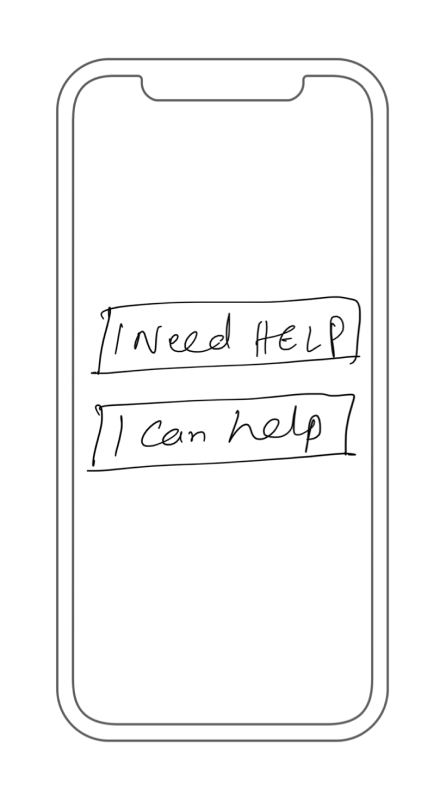 I Need HELP
I can help